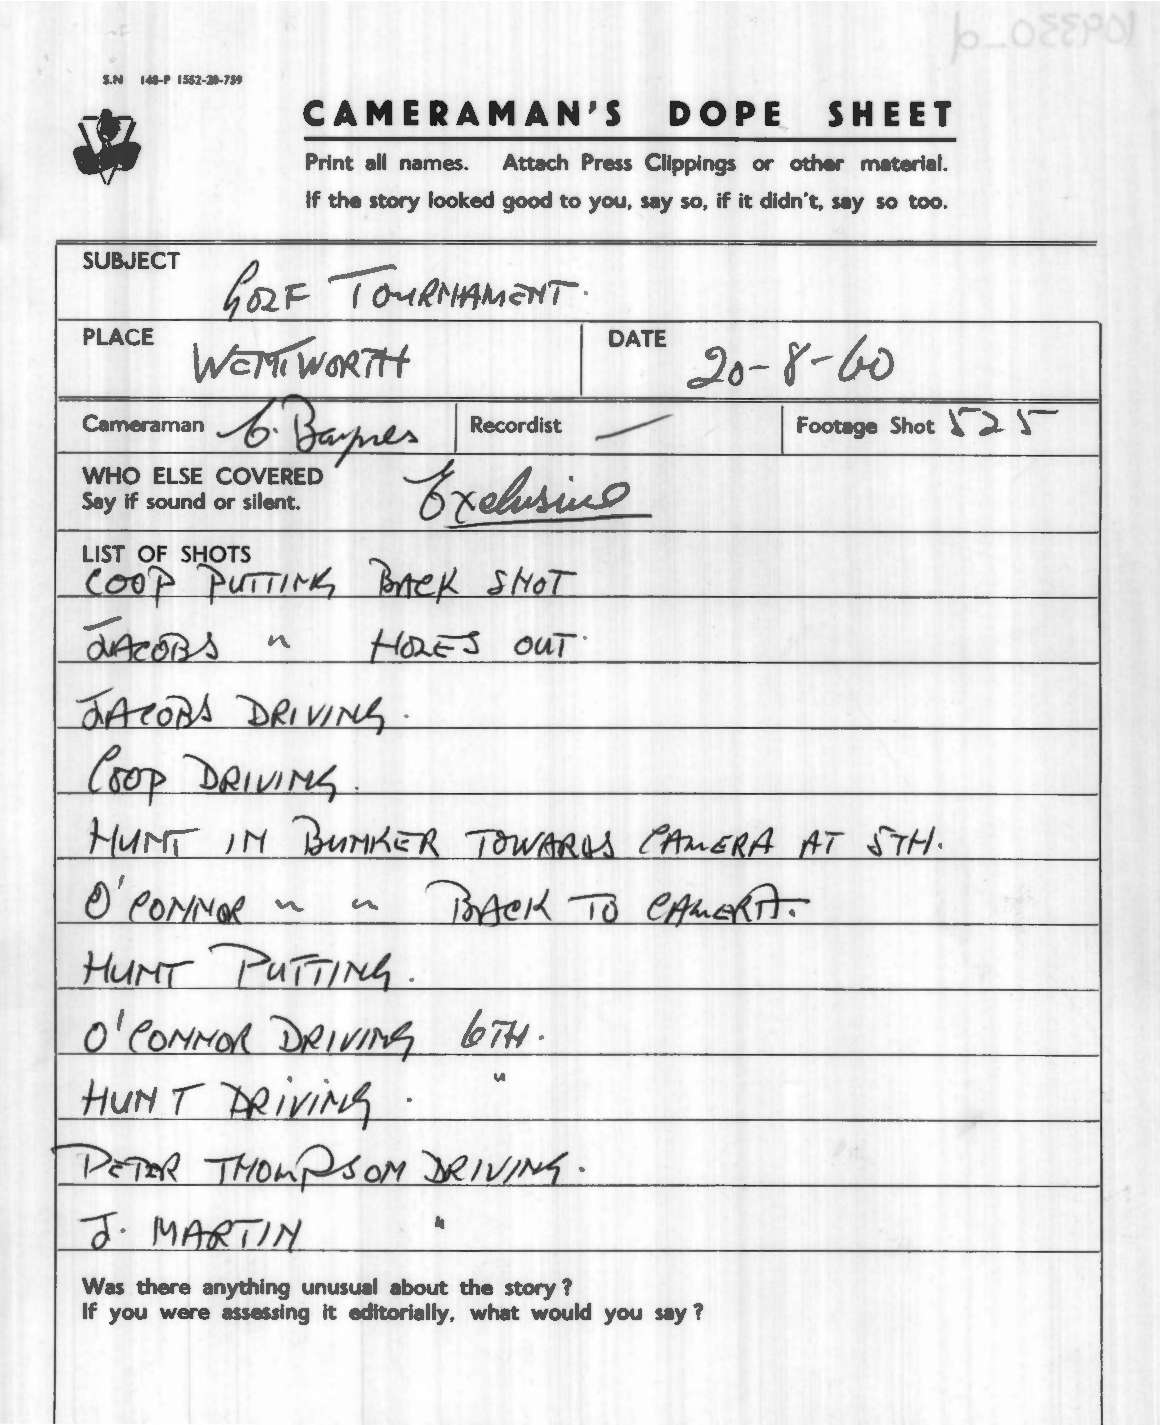 S.N 148-P 1552-20-759
CAMERAMAN'S DOPE SHEET
Print all names. Attach Press Clippings or other material.
If the story looked good to you, say so, if it didn't, say so too.
SUBJECT GOLF TOURNAMENT.
PLACE WENTWORTH DATE 20-8-60
Cameraman G. Baynes Recordist — Footage Shot 525
WHO ELSE COVERED
Say if sound or silent. Exclusive
LIST OF SHOTS
COOP PUTTING BACK SHOT
JACOBS " HOLES OUT.
JACOBS DRIVING.
COOP DRIVING.
HUNT IN BUNKER TOWARDS CAMERA AT 5TH.
O'CONNOR " " BACK TO CAMERA.
HUNT PUTTING.
O'CONNOR DRIVING 6TH.
HUNT DRIVING. "
PETER THOMPSON DRIVING.
J. MARTIN "
Was there anything unusual about the story?
If you were assessing it editorially, what would you say?